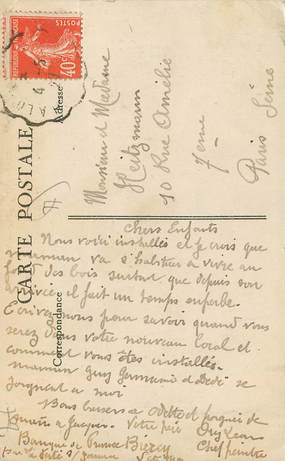 CARTE POSTALE
Correspondance
Adresse
POSTES
40c
Monsieur et Madame
Heitzmann
10 Rue Amélie
7eme
Paris Seine
Chers Enfants
Nous voici installés et je crois que
maman va s'habituer à vivre au
des bois surtout que depuis son
il fait un temps superbe.
Ecrivez nous pour savoir quand vous
serez dans votre nouveau local et
comment vous êtes installés.
maman Guy Germaine et Dédé se
joignent a moi
Bons baisers a Odette et
Votre père
Banque de France Bercy